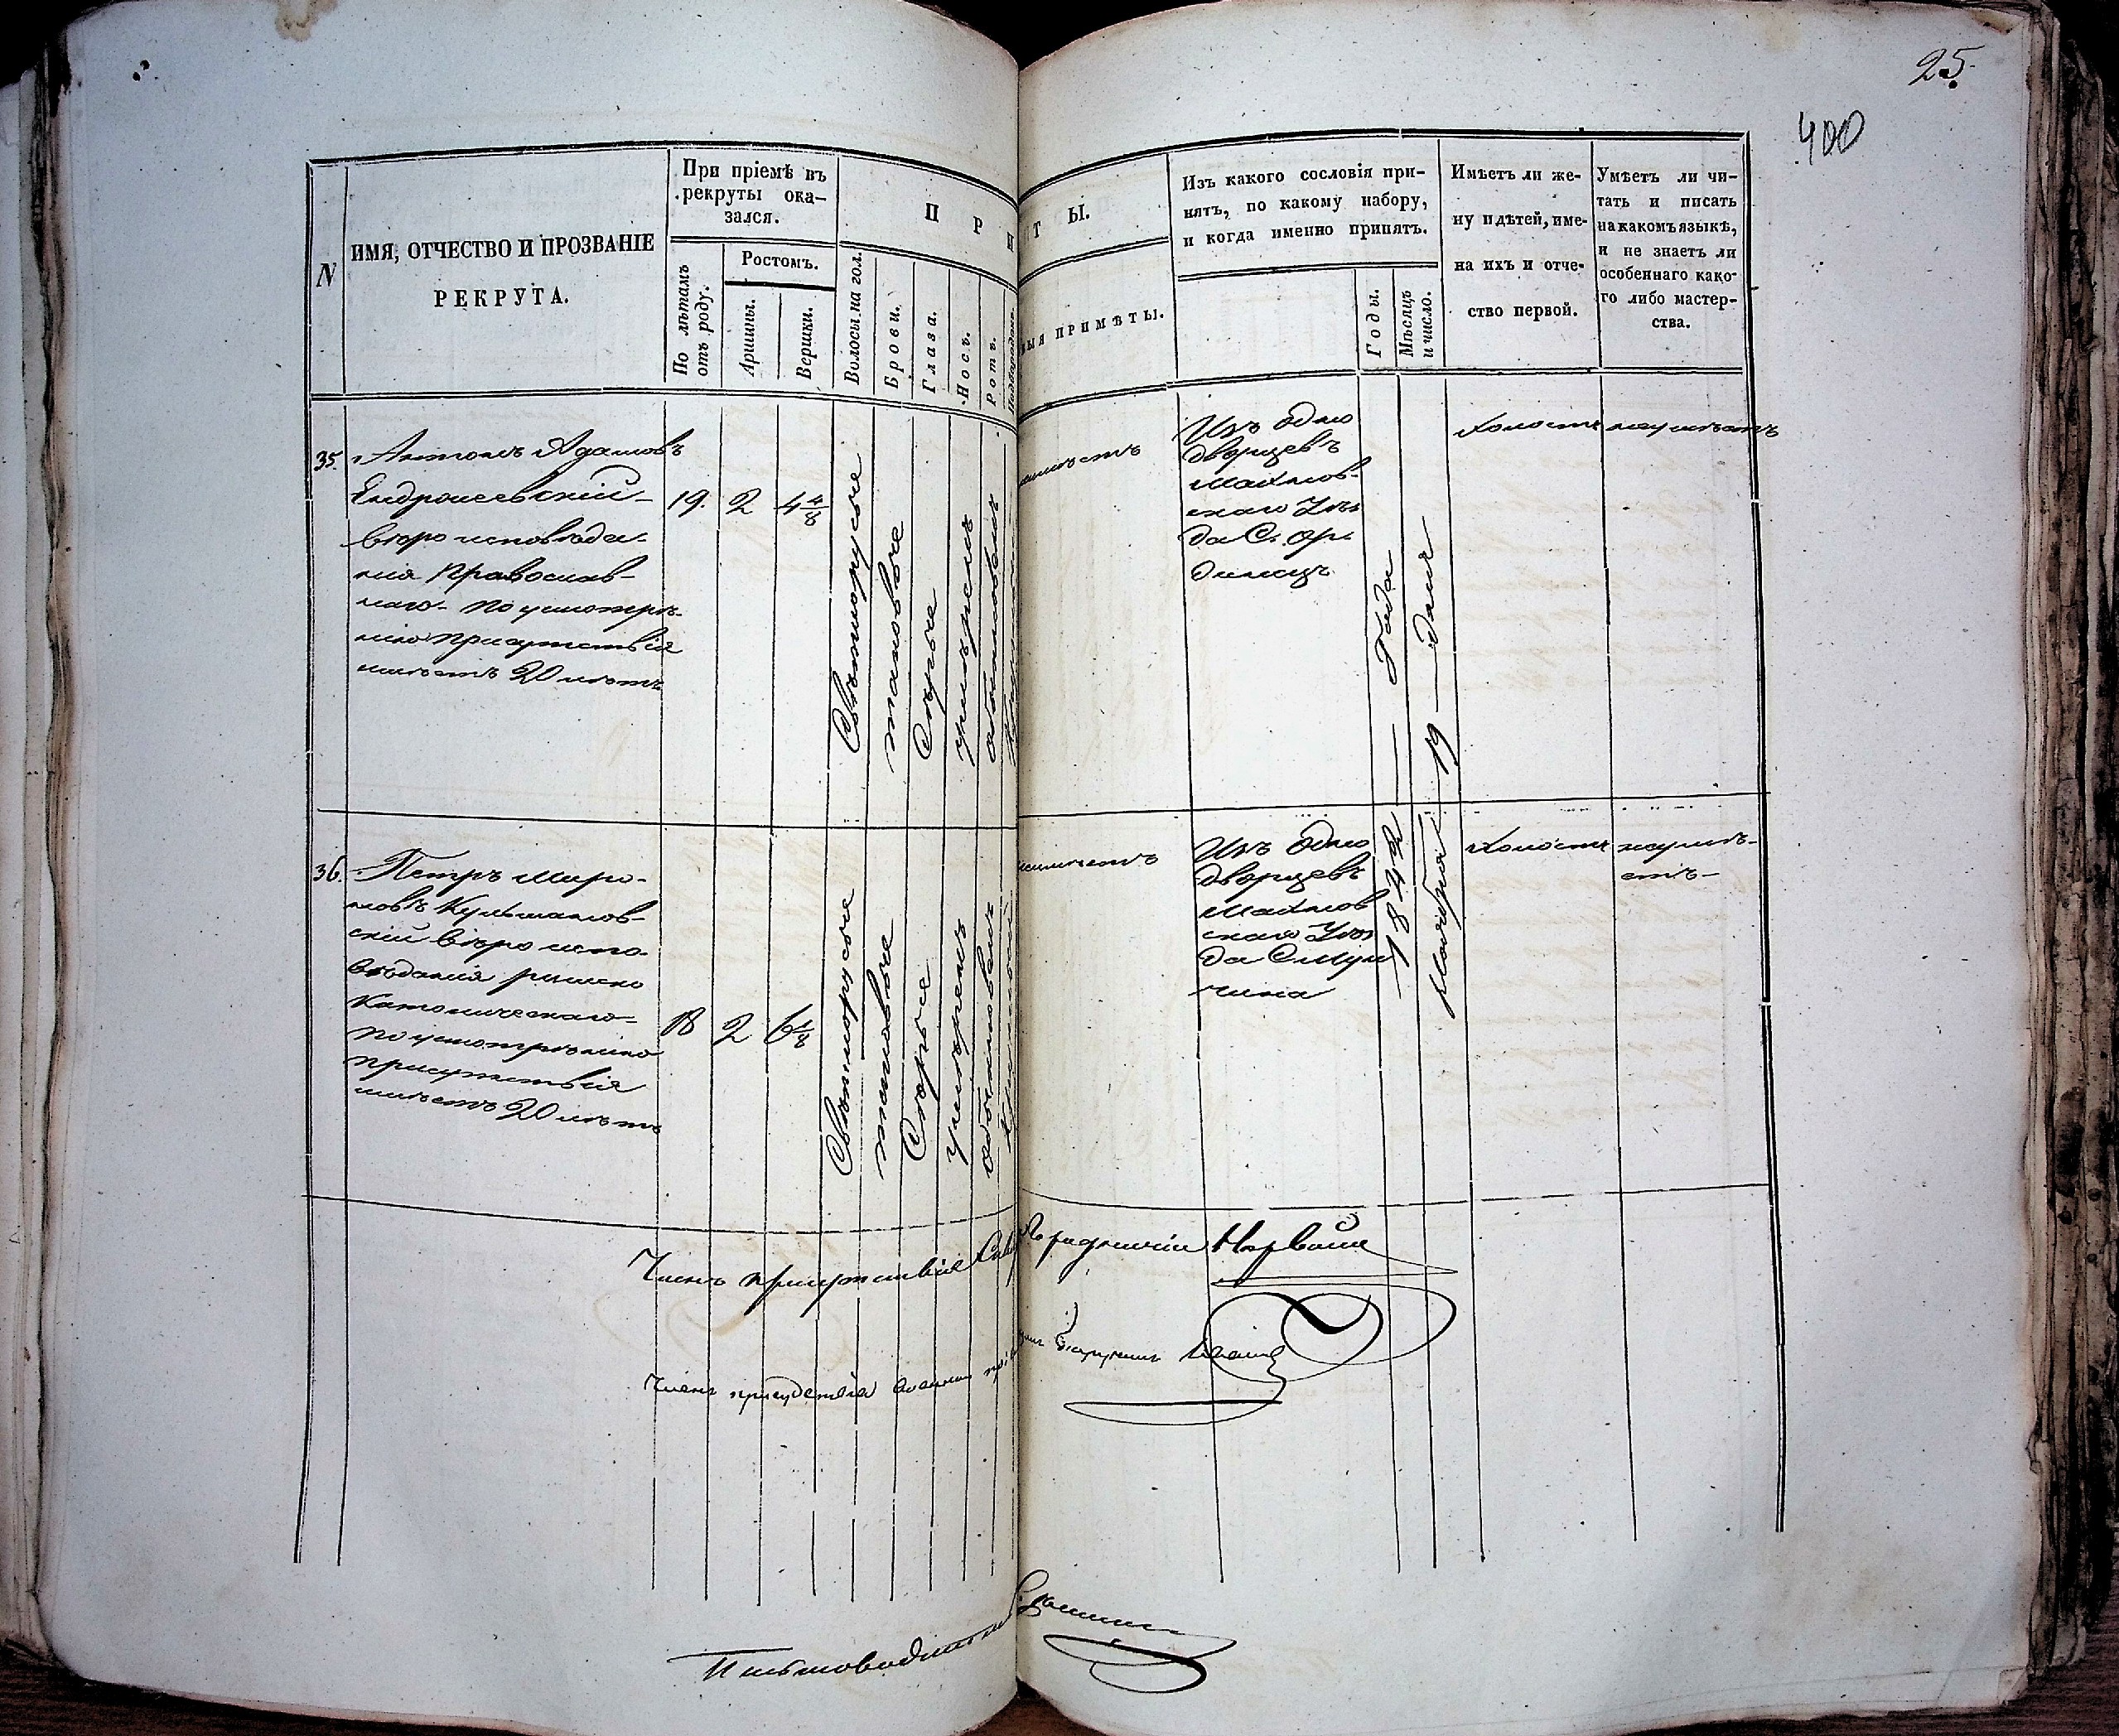 25.
400
N
ИМЯ, ОТЧЕСТВО И ПРОЗВАНІЕ
РЕКРУТА.
При пріемѣ въ
рекруты ока-
зался.
По лѣтамъ
отъ роду.
Ростомъ.
Аршины.
Вершки.
П Р И
Волосы на гол.
Брови.
Глаза.
Носъ.
Ротъ.
Подбородокъ.
ТЫ.
ЫЯ ПРИМѢТЫ.
Изъ какого сословія при-
нятъ, по какому набору,
и когда именно принятъ.
Годы.
Мѣсяцъ
и число.
Имѣетъ ли же-
ну и дѣтей, име-
на ихъ и отче-
ство первой.
Умѣетъ ли чи-
тать и писать
на какомъ языкѣ,
и не знаетъ ли
особеннаго како-
го либо мастер-
ства.
35.
Антонъ Адамовъ
Ендржеевскій
вѣроисповѣда-
нія Православ-
наго- По усмотрѣ-
нію присутствія
имѣетъ 20 лѣтъ
19.
2
4 4/8
Свѣтлорусые
таковые
Сѣрые
умѣренъ
обыкновенъ
Изъ одно
дворцевъ
Махнов-
скаго Уѣз
да С.
холостъ
неумѣетъ
36.
Петръ Миро-
новъ Кульмановскій
вѣроиспо-
вѣданія римско
Католическаго-
По усмотрѣнію
присутствія
имѣетъ 20 лѣтъ
18
2
6 1/8
Свѣтлорусые
таковые
Сѣрые
умѣренъ
обыкновенъ
Изъ одно
дворцевъ
Махнов
скаго Уѣз
да
1842 — Года
Ноября — 19 — дня
холостъ
неумѣ-
етъ-
Членъ присутствія
Городничій
Членъ присудствія военный
Письмоводитель